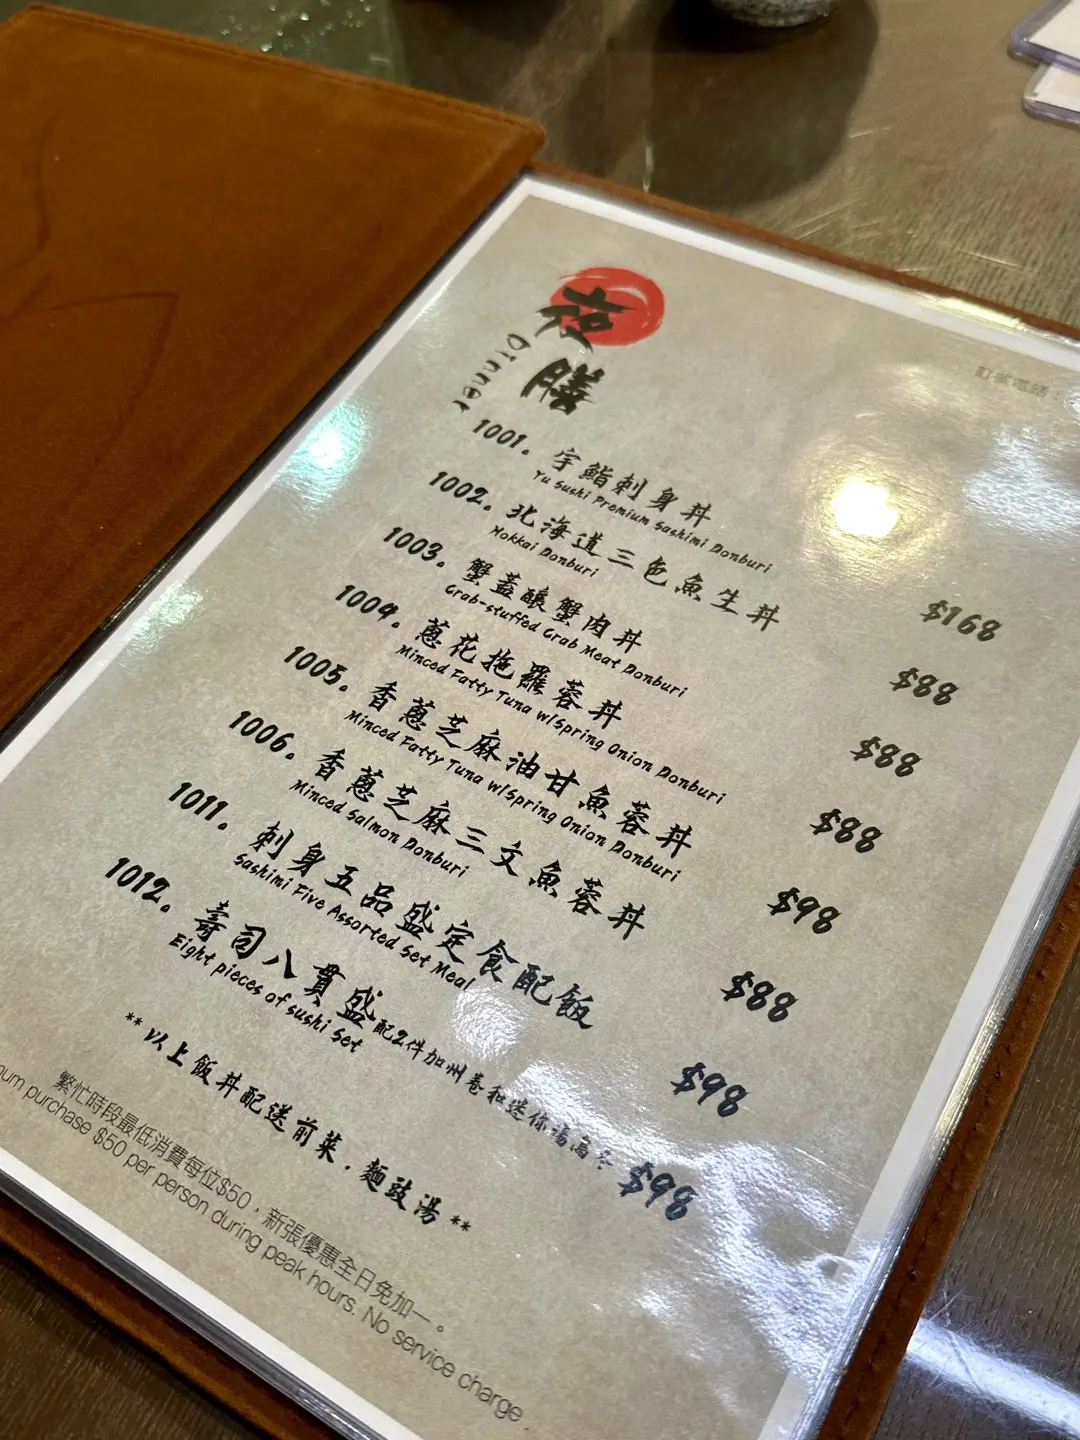 夜膳
Dinner
訂座電話：
1001. 宇鮨刺身丼 $168
Yu Sushi Premium Sashimi Donburi
1002. 北海道三色魚生丼 $88
Hokkai Donburi
1003. 蟹蓋釀蟹肉丼 $88
Crab-stuffed Crab Meat Donburi
1004. 蔥花拖羅蓉丼 $88
Minced Fatty Tuna w/Spring Onion Donburi
1005. 香蔥芝麻油甘魚蓉丼 $98
Minced Fatty Tuna w/Spring Onion Donburi
1006. 香蔥芝麻三文魚蓉丼 $88
Minced Salmon Donburi
1011. 刺身五品盛定食配飯 $98
Sashimi Five Assorted Set Meal
1012. 壽司八貫盛配2件加州卷和迷你湯烏冬 $98
Eight pieces of sushi Set
** 以上飯丼配送前菜．麵豉湯 **
繁忙時段最低消費每位$50，新張優惠全日免加一。
purchase $50 per person during peak hours. No service charge